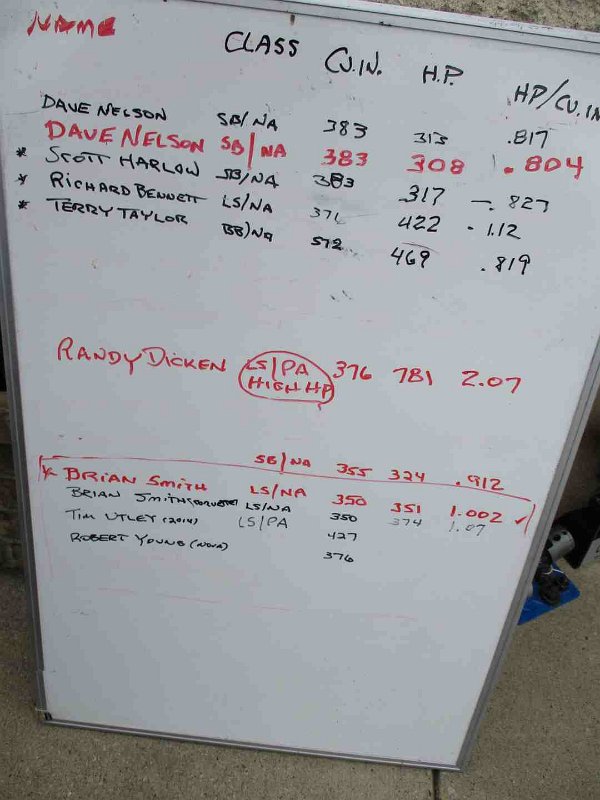 NAME CLASS CU.IN. H.P. HP/CU.IN
DAVE NELSON SB/NA 383 313 .817
DAVE NELSON SB/NA 383 308 .804
* SCOTT HARLOW SB/NA 383 317 .827
* RICHARD BENNETT LS/NA 376 422 1.12
* TERRY TAYLOR BB/NA 572 469 .819
RANDY DICKEN LS/PA 376 781 2.07
HIGH HP
* BRIAN SMITH SB/NA 355 324 .912
BRIAN SMITH (CORVETTE) LS/NA 350 351 1.002 ✓
TIM UTLEY (2014) LS/NA 350 374 1.07
ROBERT YOUNG (NOVA) LS/PA 427
376